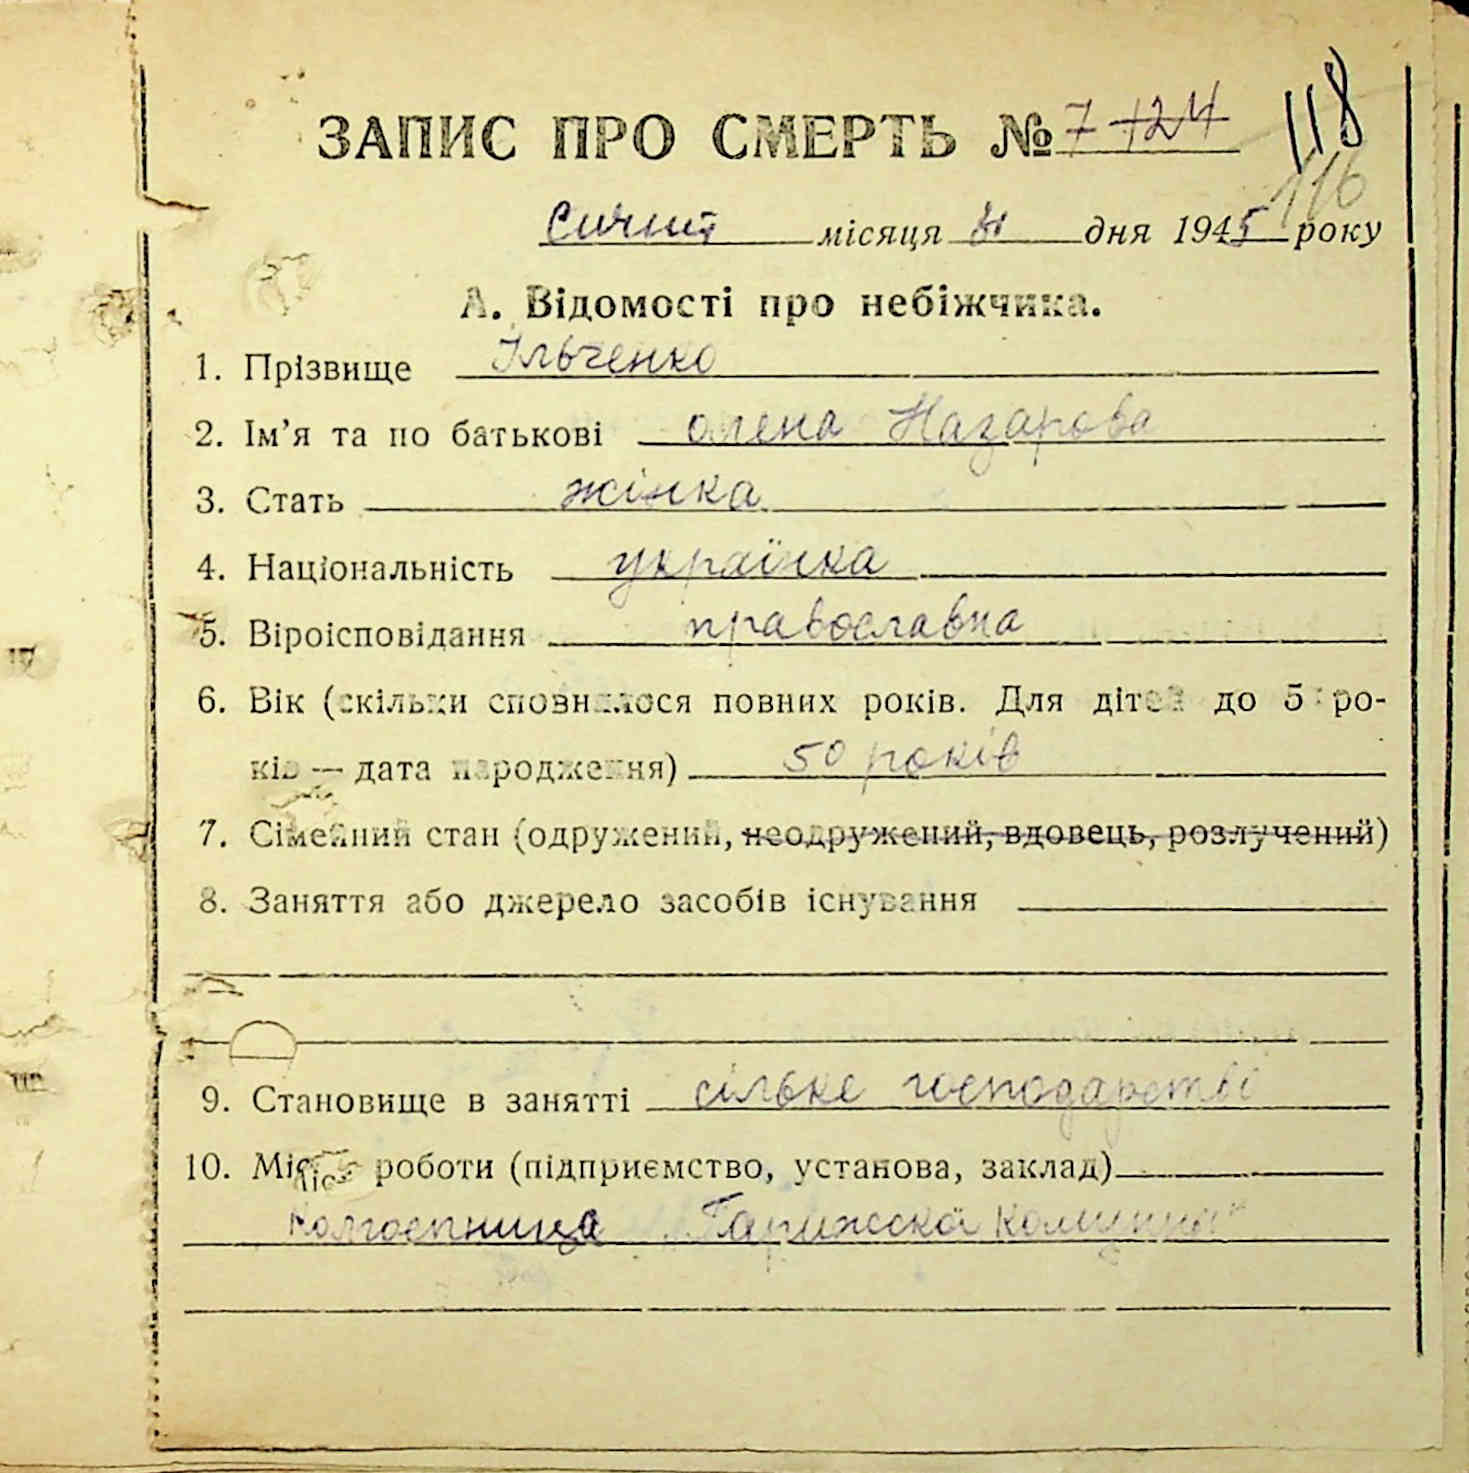 118
ЗАПИС ПРО СМЕРТЬ № 7 124
116
місяця 31 дня 1945 року
А. Відомості про небіжчика.
1. Прізвище Ільченко
2. Ім’я та по батькові олена Назарова
3. Стать жінка
4. Національність українка
5. Віроісповідання православна
6. Вік (скільки сповнилося повних років. Для дітей до 5 ро-
ків — дата народження) 50 років
7. Сімейний стан (одружений, неодружений, вдовець, розлучений)
8. Заняття або джерело засобів існування
9. Становище в занятті сільке господарстві
10. Місце роботи (підприємство, установа, заклад)
Колгоспниця